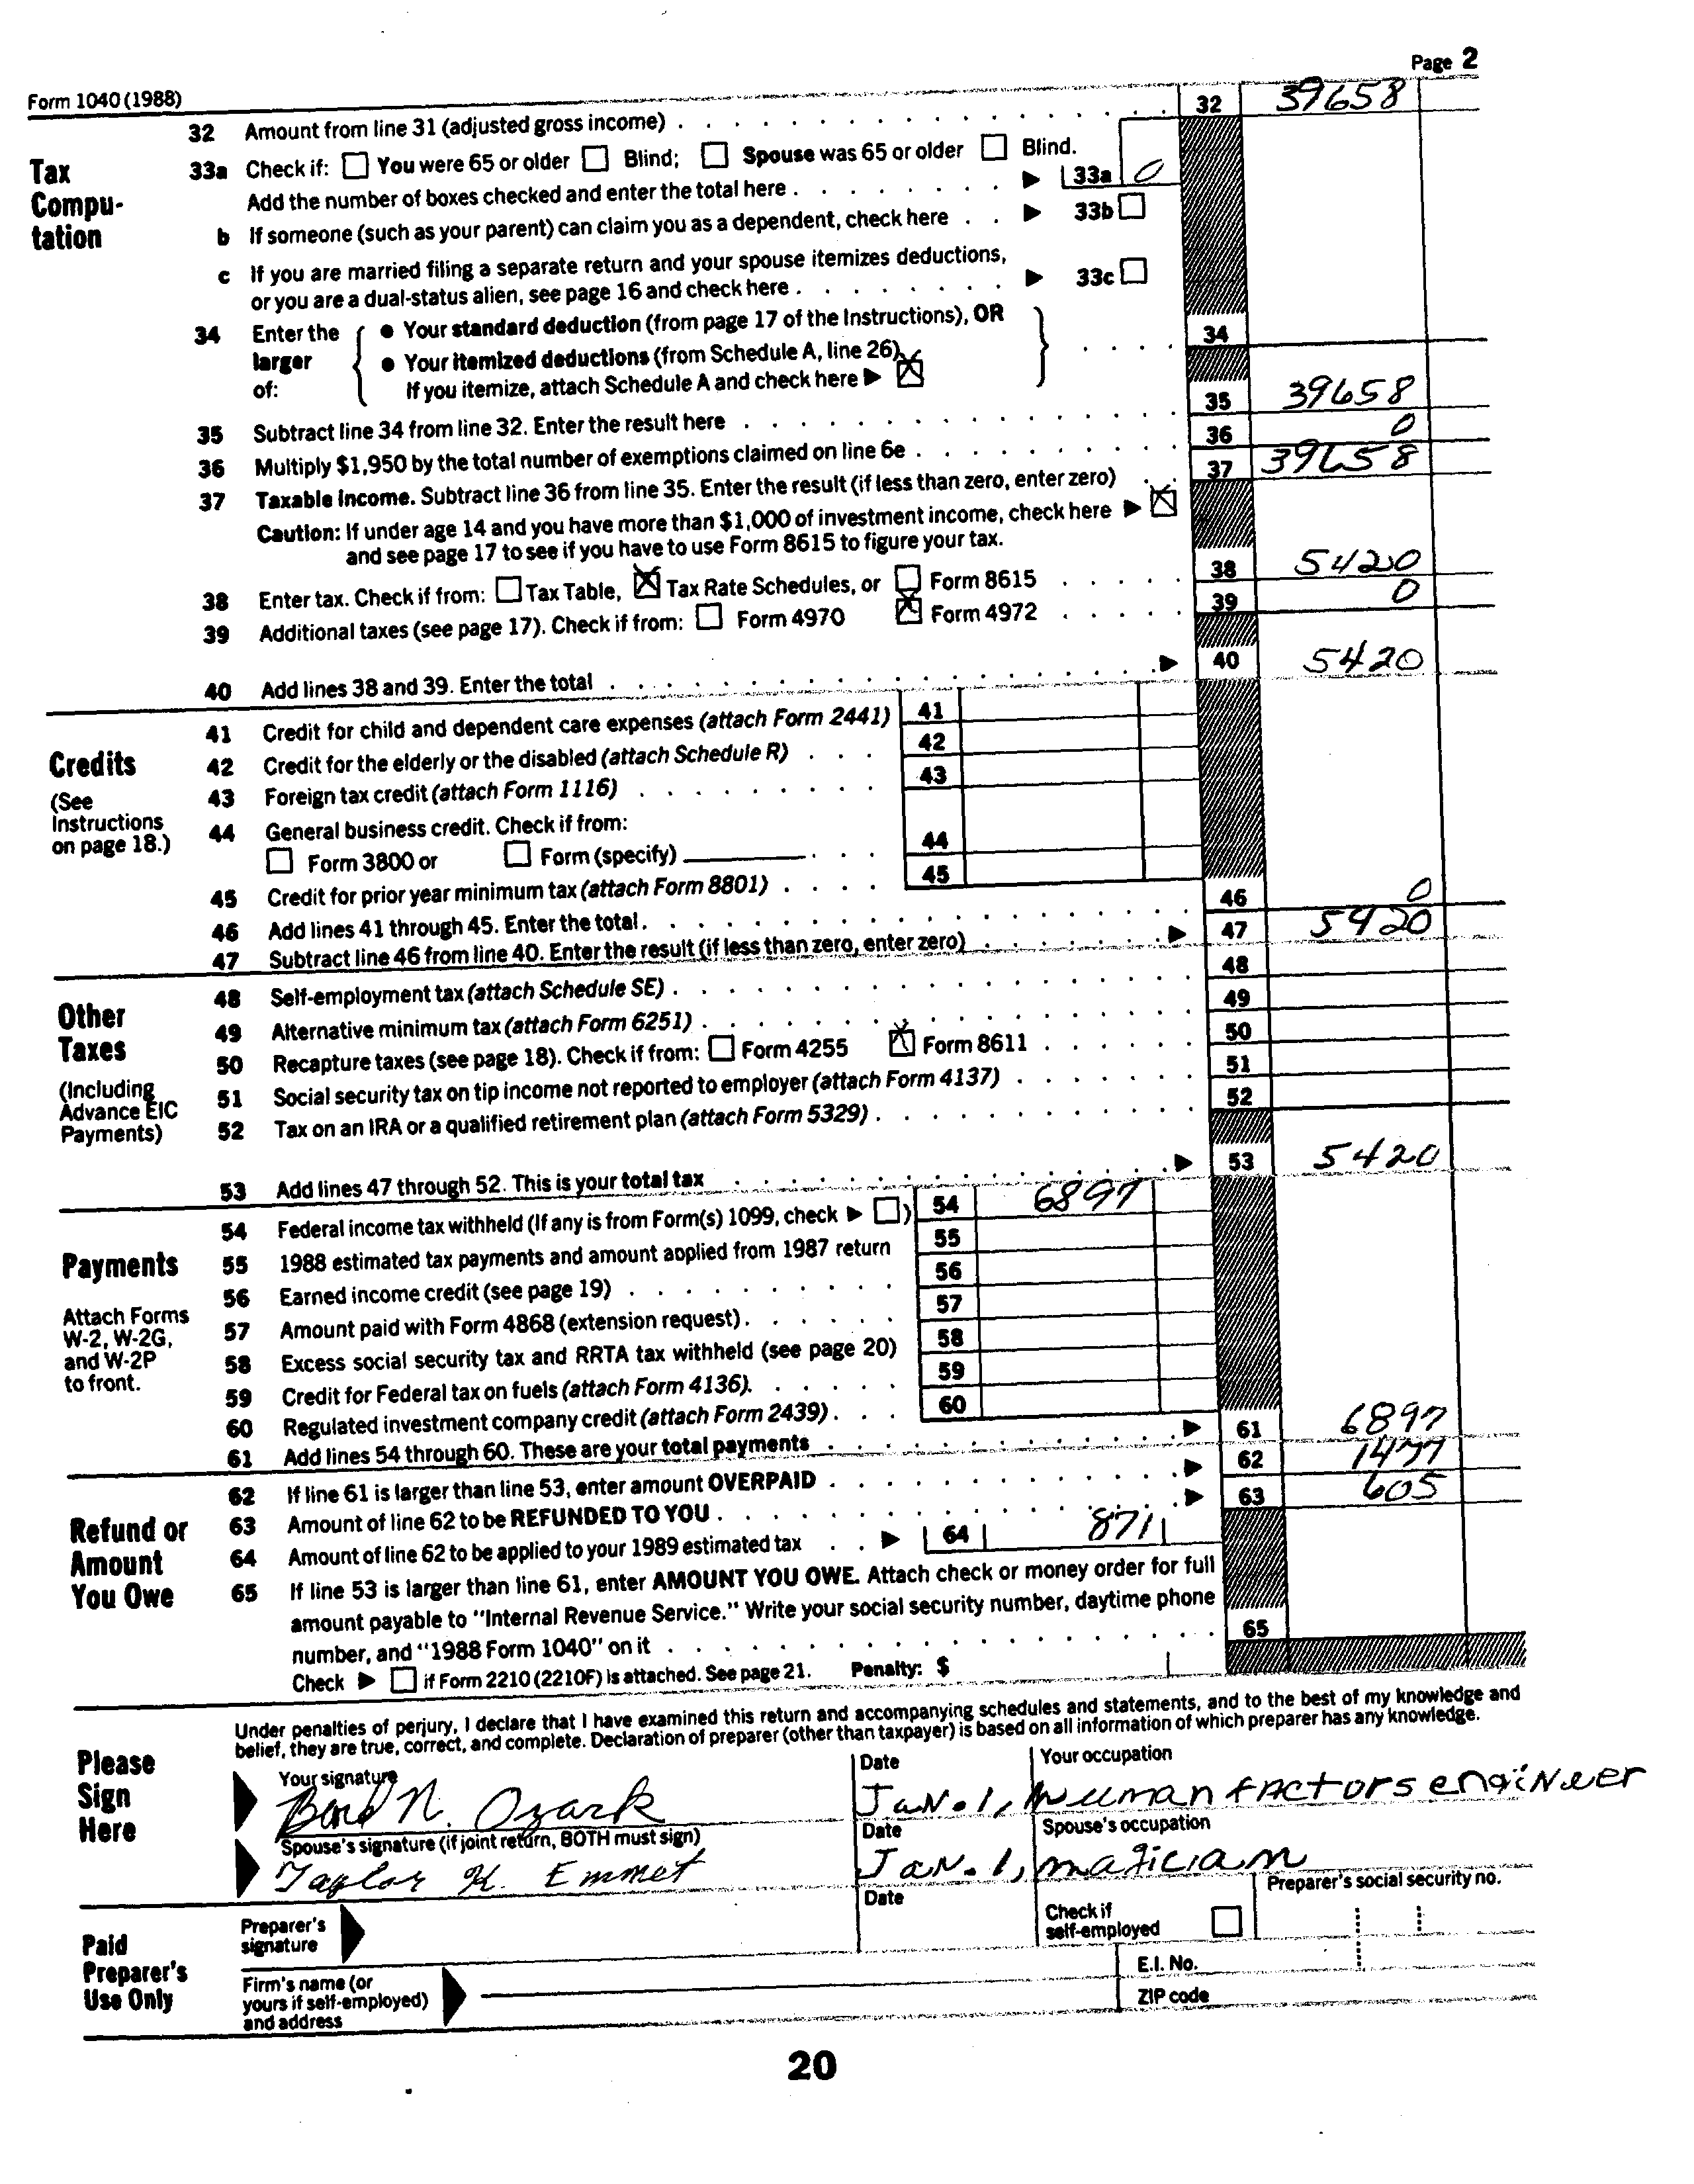 Page 2
Form 1040 (1988)
32 Amount from line 31 (adjusted gross income) 32 39658
Tax Computation
33a Check if: You were 65 or older Blind; Spouse was 65 or older Blind.
Add the number of boxes checked and enter the total here 33a 0
b If someone (such as your parent) can claim you as a dependent, check here 33b
c If you are married filing a separate return and your spouse itemizes deductions,
or you are a dual-status alien, see page 16 and check here 33c
34 Enter the larger of: • Your standard deduction (from page 17 of the Instructions), OR
• Your itemized deductions (from Schedule A, line 26). 34
If you itemize, attach Schedule A and check here ▶ X
35 Subtract line 34 from line 32. Enter the result here 35 39658
36 Multiply $1,950 by the total number of exemptions claimed on line 6e 36 0
37 Taxable Income. Subtract line 36 from line 35. Enter the result (if less than zero, enter zero) 37 39658
Caution: If under age 14 and you have more than $1,000 of investment income, check here ▶ X
and see page 17 to see if you have to use Form 8615 to figure your tax.
38 Enter tax. Check if from: Tax Table, X Tax Rate Schedules, or Form 8615 38 5420
39 Additional taxes (see page 17). Check if from: Form 4970 X Form 4972 39 0
40 Add lines 38 and 39. Enter the total ▶ 40 5420
Credits
(See Instructions on page 18.)
41 Credit for child and dependent care expenses (attach Form 2441) 41
42 Credit for the elderly or the disabled (attach Schedule R) 42
43 Foreign tax credit (attach Form 1116) 43
44 General business credit. Check if from:
Form 3800 or Form (specify) 44
45 Credit for prior year minimum tax (attach Form 8801) 45
46 Add lines 41 through 45. Enter the total 46 0
47 Subtract line 46 from line 40. Enter the result (if less than zero, enter zero) ▶ 47 5420
Other Taxes
(Including Advance EIC Payments)
48 Self-employment tax (attach Schedule SE) 48
49 Alternative minimum tax (attach Form 6251) 49
50 Recapture taxes (see page 18). Check if from: Form 4255 X Form 8611 50
51 Social security tax on tip income not reported to employer (attach Form 4137) 51
52 Tax on an IRA or a qualified retirement plan (attach Form 5329) 52
53 Add lines 47 through 52. This is your total tax ▶ 53 5420
Payments
Attach Forms W-2, W-2G, and W-2P to front.
54 Federal income tax withheld (If any is from Form(s) 1099, check ▶ ) 54 6897
55 1988 estimated tax payments and amount applied from 1987 return 55
56 Earned income credit (see page 19) 56
57 Amount paid with Form 4868 (extension request) 57
58 Excess social security tax and RRTA tax withheld (see page 20) 58
59 Credit for Federal tax on fuels (attach Form 4136). 59
60 Regulated investment company credit (attach Form 2439) 60
61 Add lines 54 through 60. These are your total payments ▶ 61 6897
Refund or Amount You Owe
62 If line 61 is larger than line 53, enter amount OVERPAID ▶ 62 1477
63 Amount of line 62 to be REFUNDED TO YOU ▶ 63 605
64 Amount of line 62 to be applied to your 1989 estimated tax ▶ 64 871
65 If line 53 is larger than line 61, enter AMOUNT YOU OWE. Attach check or money order for full
amount payable to "Internal Revenue Service." Write your social security number, daytime phone
number, and "1988 Form 1040" on it 65
Check ▶ if Form 2210 (2210F) is attached. See page 21. Penalty: $
Please Sign Here
Under penalties of perjury, I declare that I have examined this return and accompanying schedules and statements, and to the best of my knowledge and
belief, they are true, correct, and complete. Declaration of preparer (other than taxpayer) is based on all information of which preparer has any knowledge.
Your signature Date Your occupation
N. Ozark Jan. 1, human factors engineer
Spouse's signature (if joint return, BOTH must sign) Date Spouse's occupation
Taylor K. Emmet Jan. 1, magician
Paid Preparer's Use Only
Preparer's signature Date Check if self-employed Preparer's social security no.
Firm's name (or yours if self-employed) and address E.I. No.
ZIP code
20